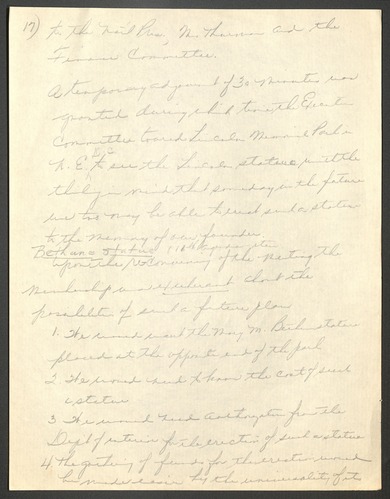 17) to the Nat'l Pres, Mr. Thurman and the
Finance Committee.
A temporary adjournment of 30 minutes was
granted during which time the Executive
Committee toured Lincoln Memorial Park
N.E. to see the Lincoln statue, with the
thing in mind that someday in the future
we too may be able to erect such a statue
to the memory of our founder.
Bethune Statue
upon the reconvening of the meeting the
membership was exuberant about the
possibilities of such a future plan
1. We would want the Mary M. Bethune statue
placed at the opposite end of the park
2. We would need to know the cost of such
a statue
3. We would need authorization from the
Dept of Interior for the erection of such a statue
4. The getting of funds for the creation would
be made easier by the universality of its